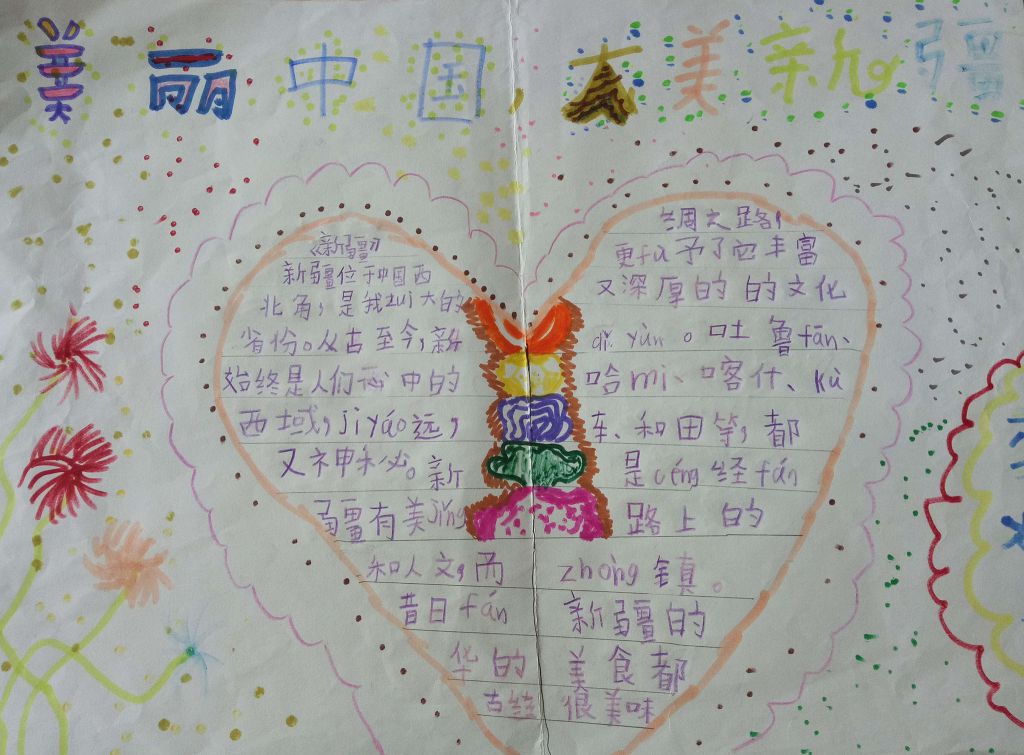 美丽中国 大美新疆
《新疆》
新疆位于中国西
北角，是我zuì大的
省份。从古至今，新
始终是人们心中的
西域，jì yáo远，
又神秘。新
疆有美jǐng
和人文，而
昔日fán
华的
古丝
绸之路，
更fù予了它丰富
又深厚的的文化
yùn。吐鲁fān、
哈mì、喀什、kù
车、和田等，都
是céng经fán
路上的
zhòng镇。
新疆的
美食都
很美味